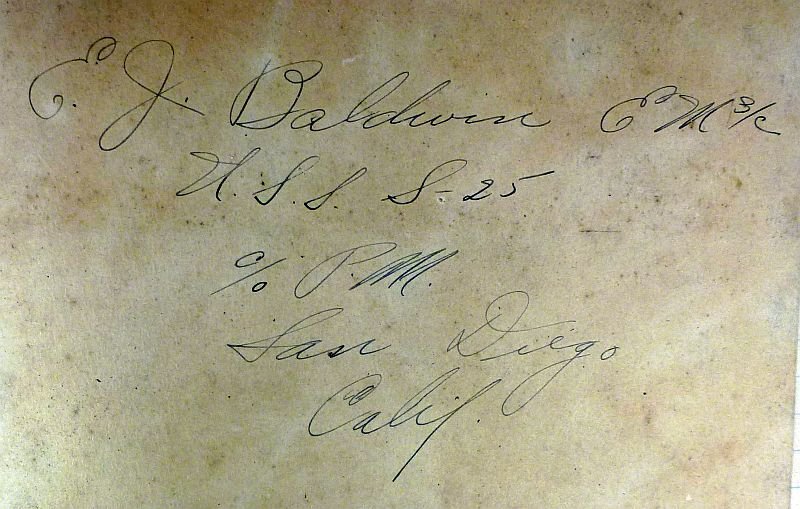 E. J. Baldwin EM 3/c
U.S.S. S-25
c/o P.M.
San Diego
Calif.